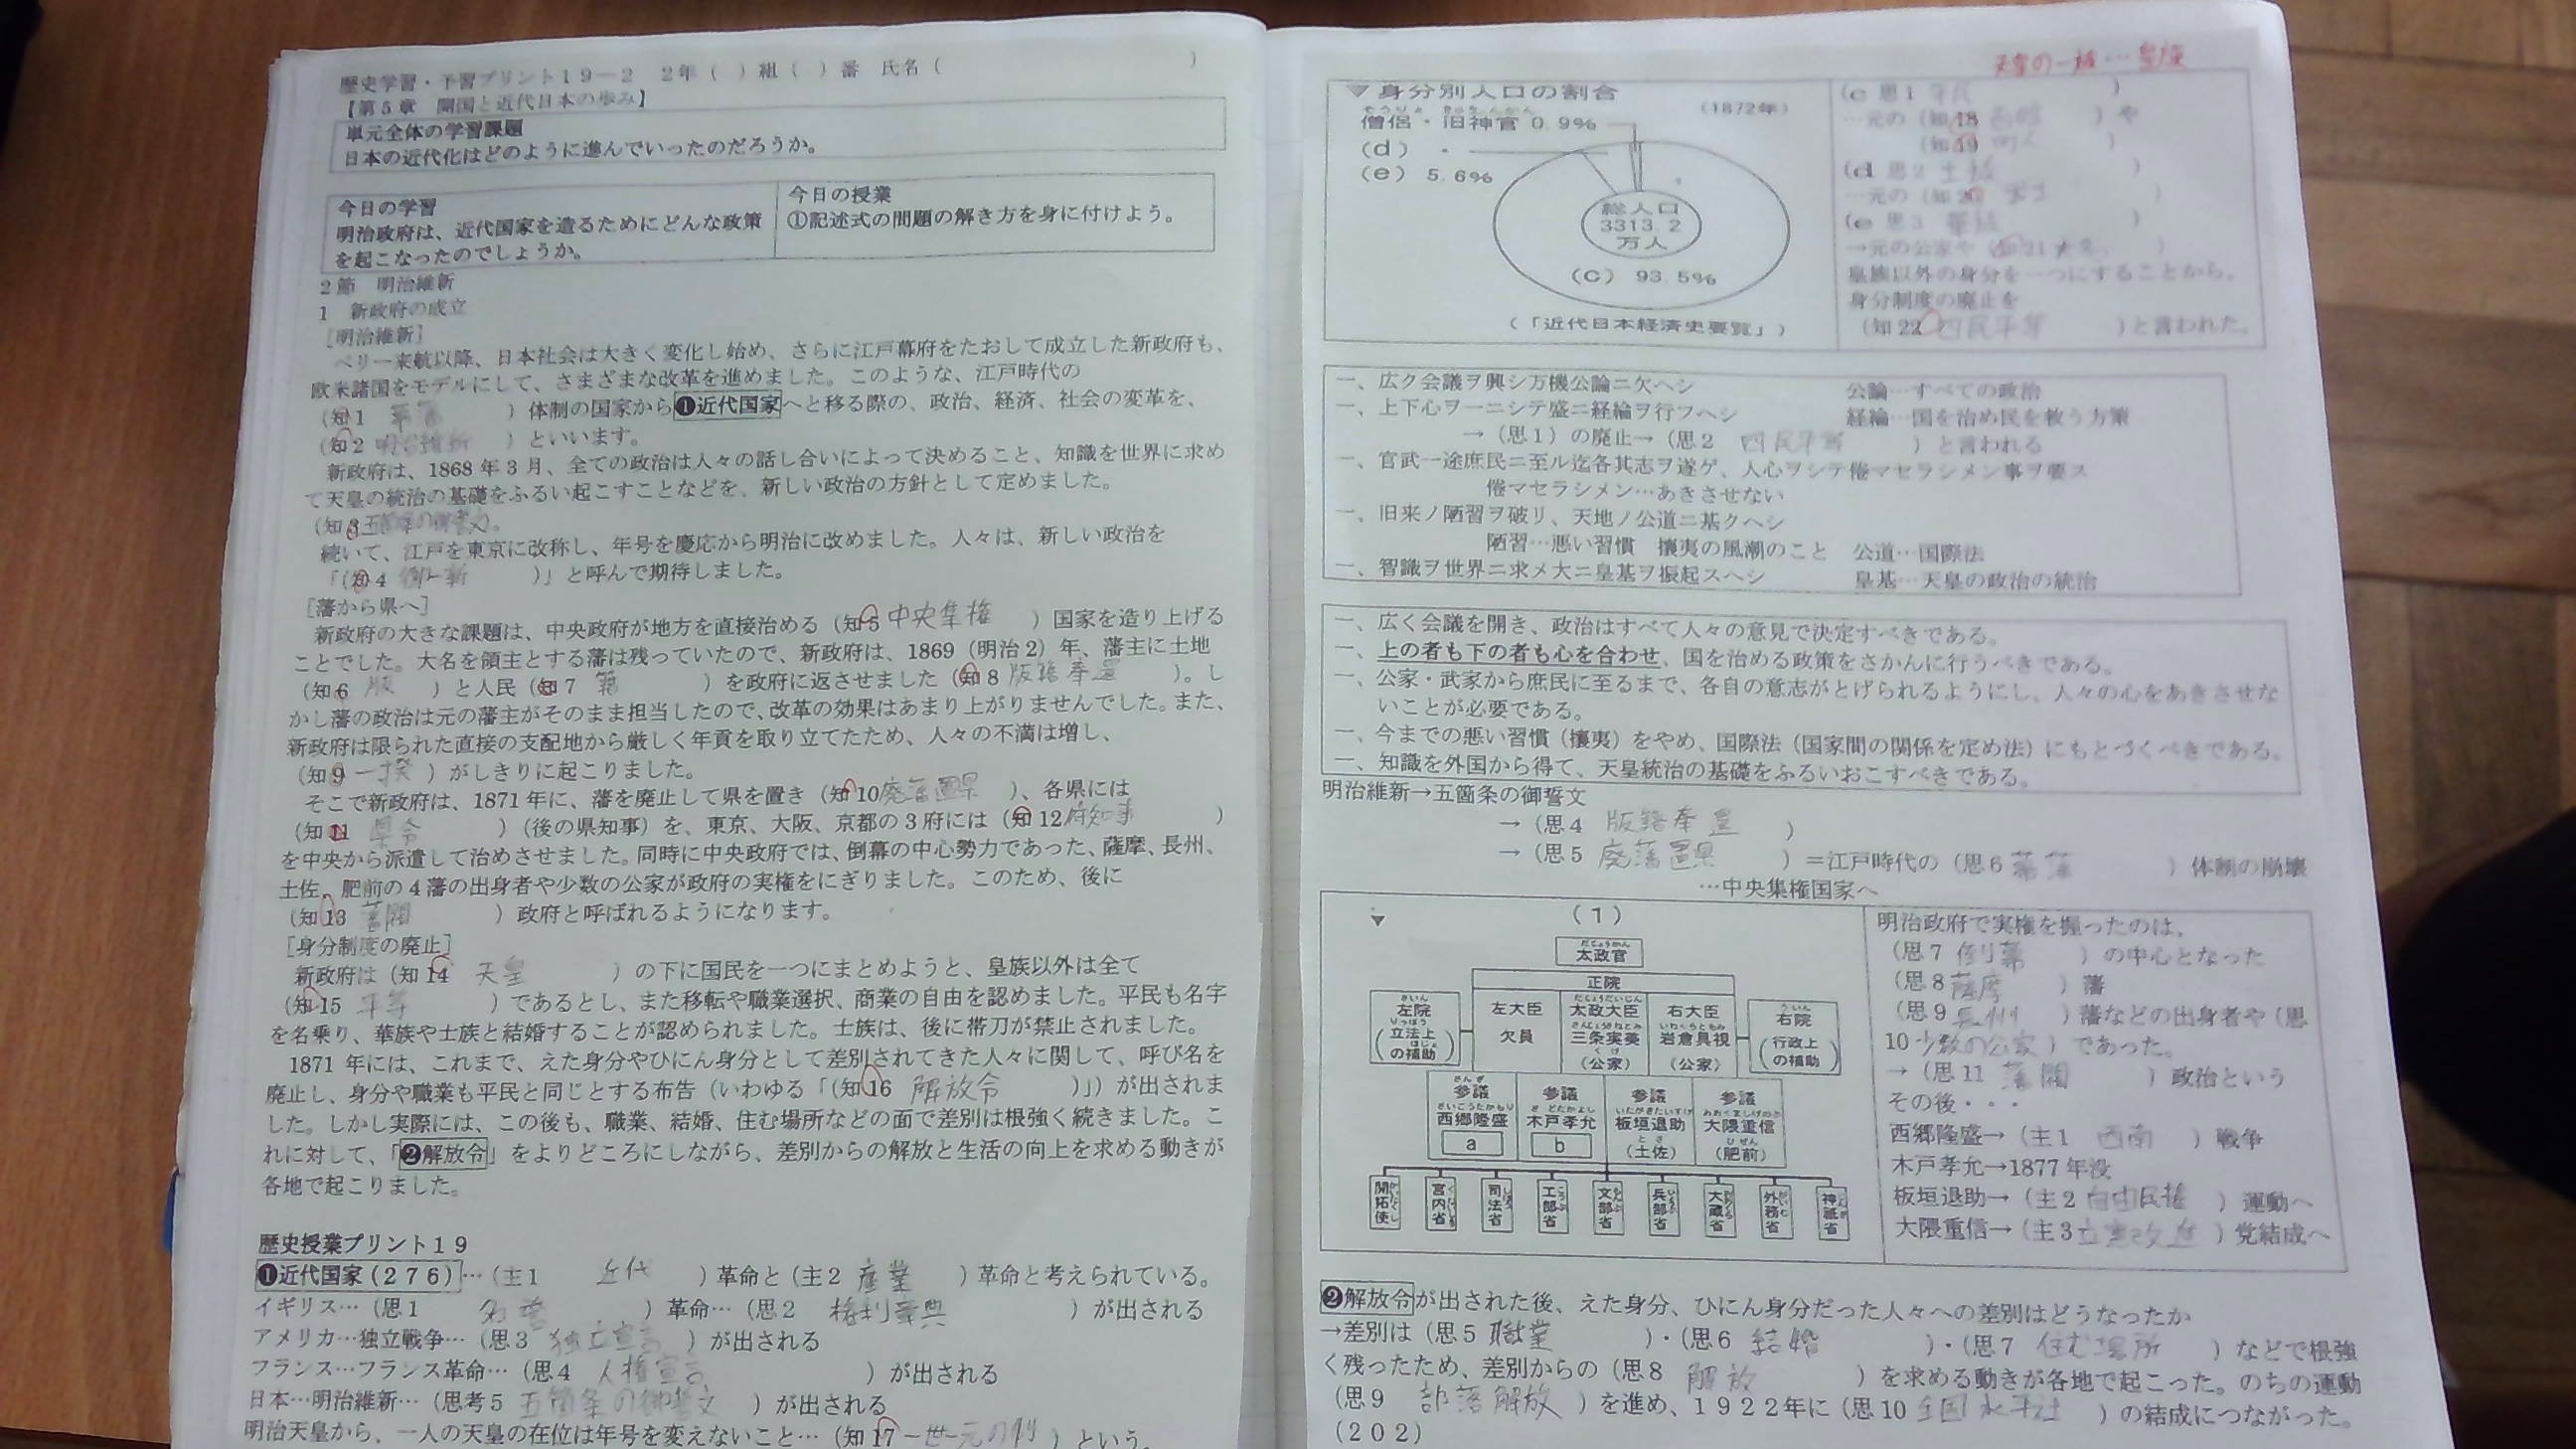 歴史学習・予習プリント１９－２　２年（　）組（　）番　氏名（　　　）
【第５章　開国と近代日本の歩み】
単元全体の学習課題
日本の近代化はどのように進んでいったのだろうか。
今日の学習
明治政府は、近代国家を造るためにどんな政策
を起こなったのでしょうか。
今日の授業
①記述式の問題の解き方を身に付けよう。
２節　明治維新
１　新政府の成立
［明治維新］
ペリー来航以降、日本社会は大きく変化し始め、さらに江戸幕府をたおして成立した新政府も、
欧米諸国をモデルにして、さまざまな改革を進めました。このような、江戸時代の
（知1 幕藩）体制の国家から❶近代国家へと移る際の、政治、経済、社会の変革を、
（知2 明治維新）といいます。
新政府は、1868年3月、全ての政治は人々の話し合いによって決めること、知識を世界に求め
て天皇の統治の基礎をふるい起こすことなどを、新しい政治の方針として定めました。
（知3 五箇条の御誓文）。
続いて、江戸を東京に改称し、年号を慶応から明治に改めました。人々は、新しい政治を
「（知4 御一新）」と呼んで期待しました。
［藩から県へ］
新政府の大きな課題は、中央政府が地方を直接治める（知5 中央集権）国家を造り上げる
ことでした。大名を領主とする藩は残っていたので、新政府は、1869（明治2）年、藩主に土地
（知6 版）と人民（知7 籍）を政府に返させました（知8 版籍奉還）。し
かし藩の政治は元の藩主がそのまま担当したので、改革の効果はあまり上がりませんでした。また、
新政府は限られた直接の支配地から厳しく年貢を取り立てたため、人々の不満は増し、
（知9 一揆）がしきりに起こりました。
そこで新政府は、1871年に、藩を廃止して県を置き（知10 廃藩置県）、各県には
（知11 県令）（後の県知事）を、東京、大阪、京都の3府には（知12 府知事）
を中央から派遣して治めさせました。同時に中央政府では、倒幕の中心勢力であった、薩摩、長州、
土佐、肥前の4藩の出身者や少数の公家が政府の実権をにぎりました。このため、後に
（知13 藩閥）政府と呼ばれるようになります。
［身分制度の廃止］
新政府は（知14 天皇）の下に国民を一つにまとめようと、皇族以外は全て
（知15 平等）であるとし、また移転や職業選択、商業の自由を認めました。平民も名字
を名乗り、華族や士族と結婚することが認められました。士族は、後に帯刀が禁止されました。
1871年には、これまで、えた身分やひにん身分として差別されてきた人々に関して、呼び名を
廃止し、身分や職業も平民と同じとする布告（いわゆる「（知16 解放令）」）が出されま
した。しかし実際には、この後も、職業、結婚、住む場所などの面で差別は根強く続きました。こ
れに対して、「❷解放令」をよりどころにしながら、差別からの解放と生活の向上を求める動きが
各地で起こりました。
歴史授業プリント１９
❶近代国家(２７６)…（主1 近代）革命と（主2 産業）革命と考えられている。
イギリス…（思1 名誉）革命…（思2 権利章典）が出される
アメリカ…独立戦争…（思3 独立宣言）が出される
フランス…フランス革命…（思4 人権宣言）が出される
日本…明治維新…（思考5 五箇条の御誓文）が出される
明治天皇から、一人の天皇の在位は年号を変えないこと…（知17 一世一元の制）という。
天皇の一族…皇族
▼身分別人口の割合
（1872年）
僧侶・旧神官 0.9%
（d）・
（e）5.6%
総人口
3313.2
万人
（c）93.5%
（「近代日本経済史要覧」）
（c 思1 平民）
…元の（知18）や
（知19 町人）
（d 思2 士族）
…元の（知20 武士）
（e 思3 華族）
→元の公家や（知21 大名）
皇族以外の身分を一つにすることから、
身分制度の廃止を
（知22 四民平等）と言われた。
一、広ク会議ヲ興シ万機公論ニ欠ヘシ　公論…すべての政治
一、上下心ヲ一ニシテ盛ニ経綸ヲ行フヘシ　経綸…国を治め民を救う方策
→（思1）の廃止→（思2 四民平等）と言われる
一、官武一途庶民ニ至ル迄各其志ヲ遂ゲ、人心ヲシテ倦マセラシメン事ヲ要ス
倦マセラシメン…あきさせない
一、旧来ノ陋習ヲ破リ、天地ノ公道ニ基クヘシ
陋習…悪い習慣　攘夷の風潮のこと　公道…国際法
一、智識ヲ世界ニ求メ大ニ皇基ヲ振起スヘシ　皇基…天皇の政治の統治
一、広く会議を開き、政治はすべて人々の意見で決定すべきである。
一、上の者も下の者も心を合わせ、国を治める政策をさかんに行うべきである。
一、公家・武家から庶民に至るまで、各自の意志がとげられるようにし、人々の心をあきさせな
いことが必要である。
一、今までの悪い習慣（攘夷）をやめ、国際法（国家間の関係を定め法）にもとづくべきである。
一、知識を外国から得て、天皇統治の基礎をふるいおこすべきである。
明治維新→五箇条の御誓文
→（思4 版籍奉還）
→（思5 廃藩置県）＝江戸時代の（思6 幕藩）体制の崩壊
…中央集権国家へ
▼（1）
だじょうかん
太政官
正院
さいん
左院
りっぽう
（立法上の補助）
左大臣
欠員
だじょうだいじん
太政大臣
さんじょうさねとみ
三条実美
くげ
（公家）
右大臣
いわくらともみ
岩倉具視
（公家）
ういん
右院
（行政上の補助）
さんぎ
参議
さいごうたかもり
西郷隆盛
a
参議
きどたかよし
木戸孝允
b
参議
いたがきたいすけ
板垣退助
とさ
（土佐）
参議
おおくましげのぶ
大隈重信
ひぜん
（肥前）
開拓使
宮内省
司法省
工部省
文部省
兵部省
大蔵省
外務省
神祇省
明治政府で実権を握ったのは、
（思7 倒幕）の中心となった
（思8 薩摩）藩
（思9 長州）藩などの出身者や（思
10 少数の公家）であった。
→（思11 藩閥）政治という
その後・・・
西郷隆盛→（主1 西南）戦争
木戸孝允→1877年没
板垣退助→（主2 自由民権）運動へ
大隈重信→（主3 立憲改進）党結成へ
❷解放令が出された後、えた身分、ひにん身分だった人々への差別はどうなったか
→差別は（思5 職業）・（思6 結婚）・（思7 住む場所）などで根強
く残ったため、差別からの（思8 解放）を求める動きが各地で起こった。のちの運動
（思9 部落解放）を進め、１９２２年に（思10 全国水平社）の結成につながった。
(２０２)